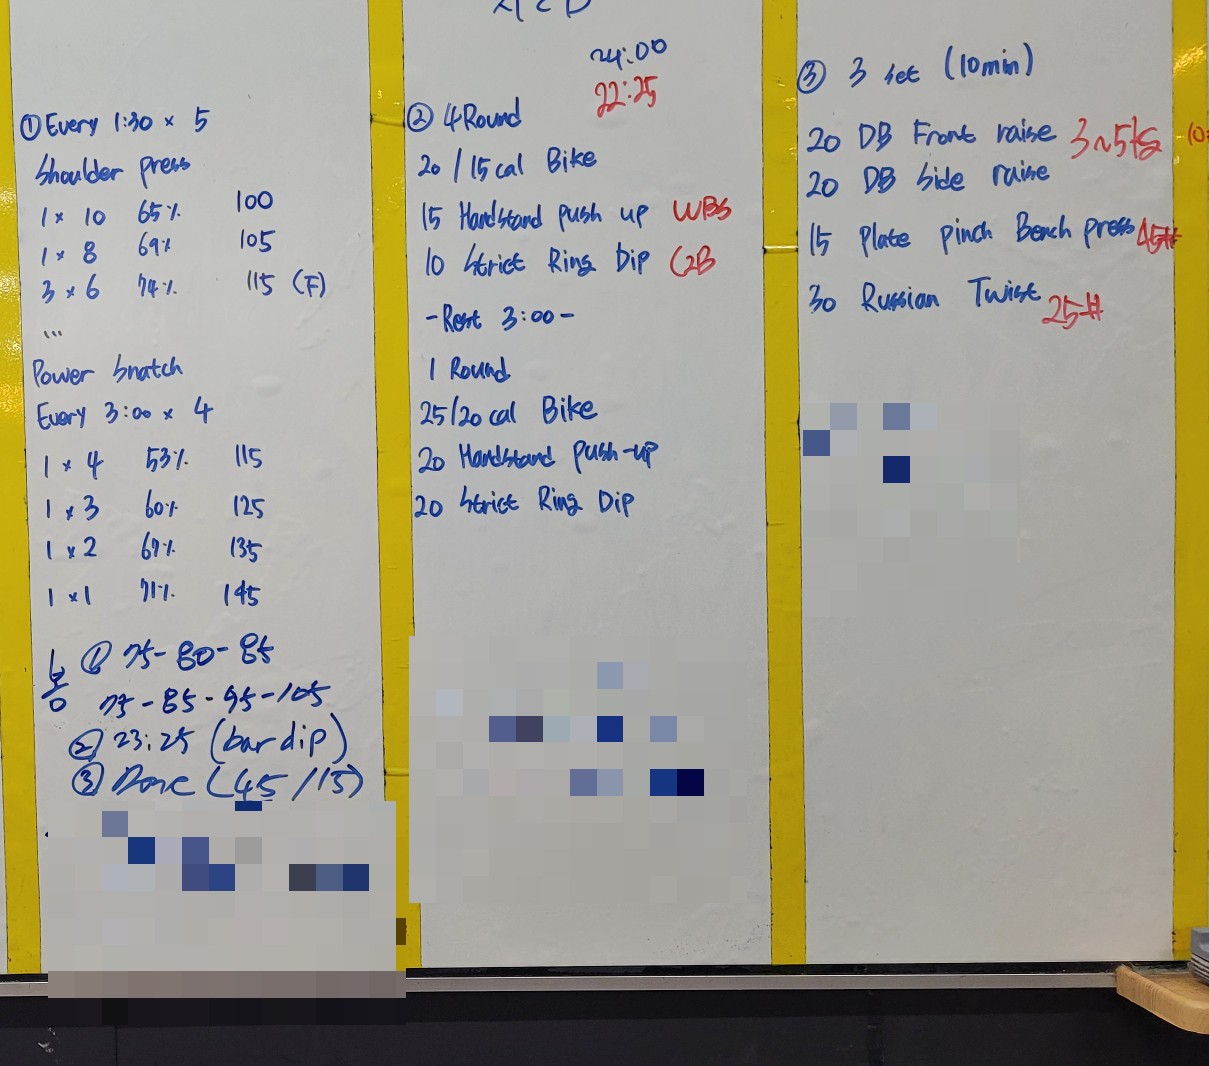 ① Every 1:30 × 5
Shoulder press
1 × 10 65% 100
1 × 8 69% 105
3 × 6 74% 115 (F)
...
Power Snatch
Every 3:00 × 4
1 × 4 53% 115
1 × 3 60% 125
1 × 2 67% 135
1 × 1 71% 145
봉 ① 75-80-85
75-85-95-105
② 23:25 (bar dip)
③ Done (45/15)
24:00
22:25
② 4 Round
20/15 cal Bike
15 Handstand push up WBS
10 Strict Ring Dip C2B
-Rest 3:00-
1 Round
25/20 cal Bike
20 Handstand push-up
20 Strict Ring Dip
③ 3 set (10min)
20 DB Front raise 3~5kg
20 DB Side raise
15 Plate pinch Bench press 45#
30 Russian Twist 25#